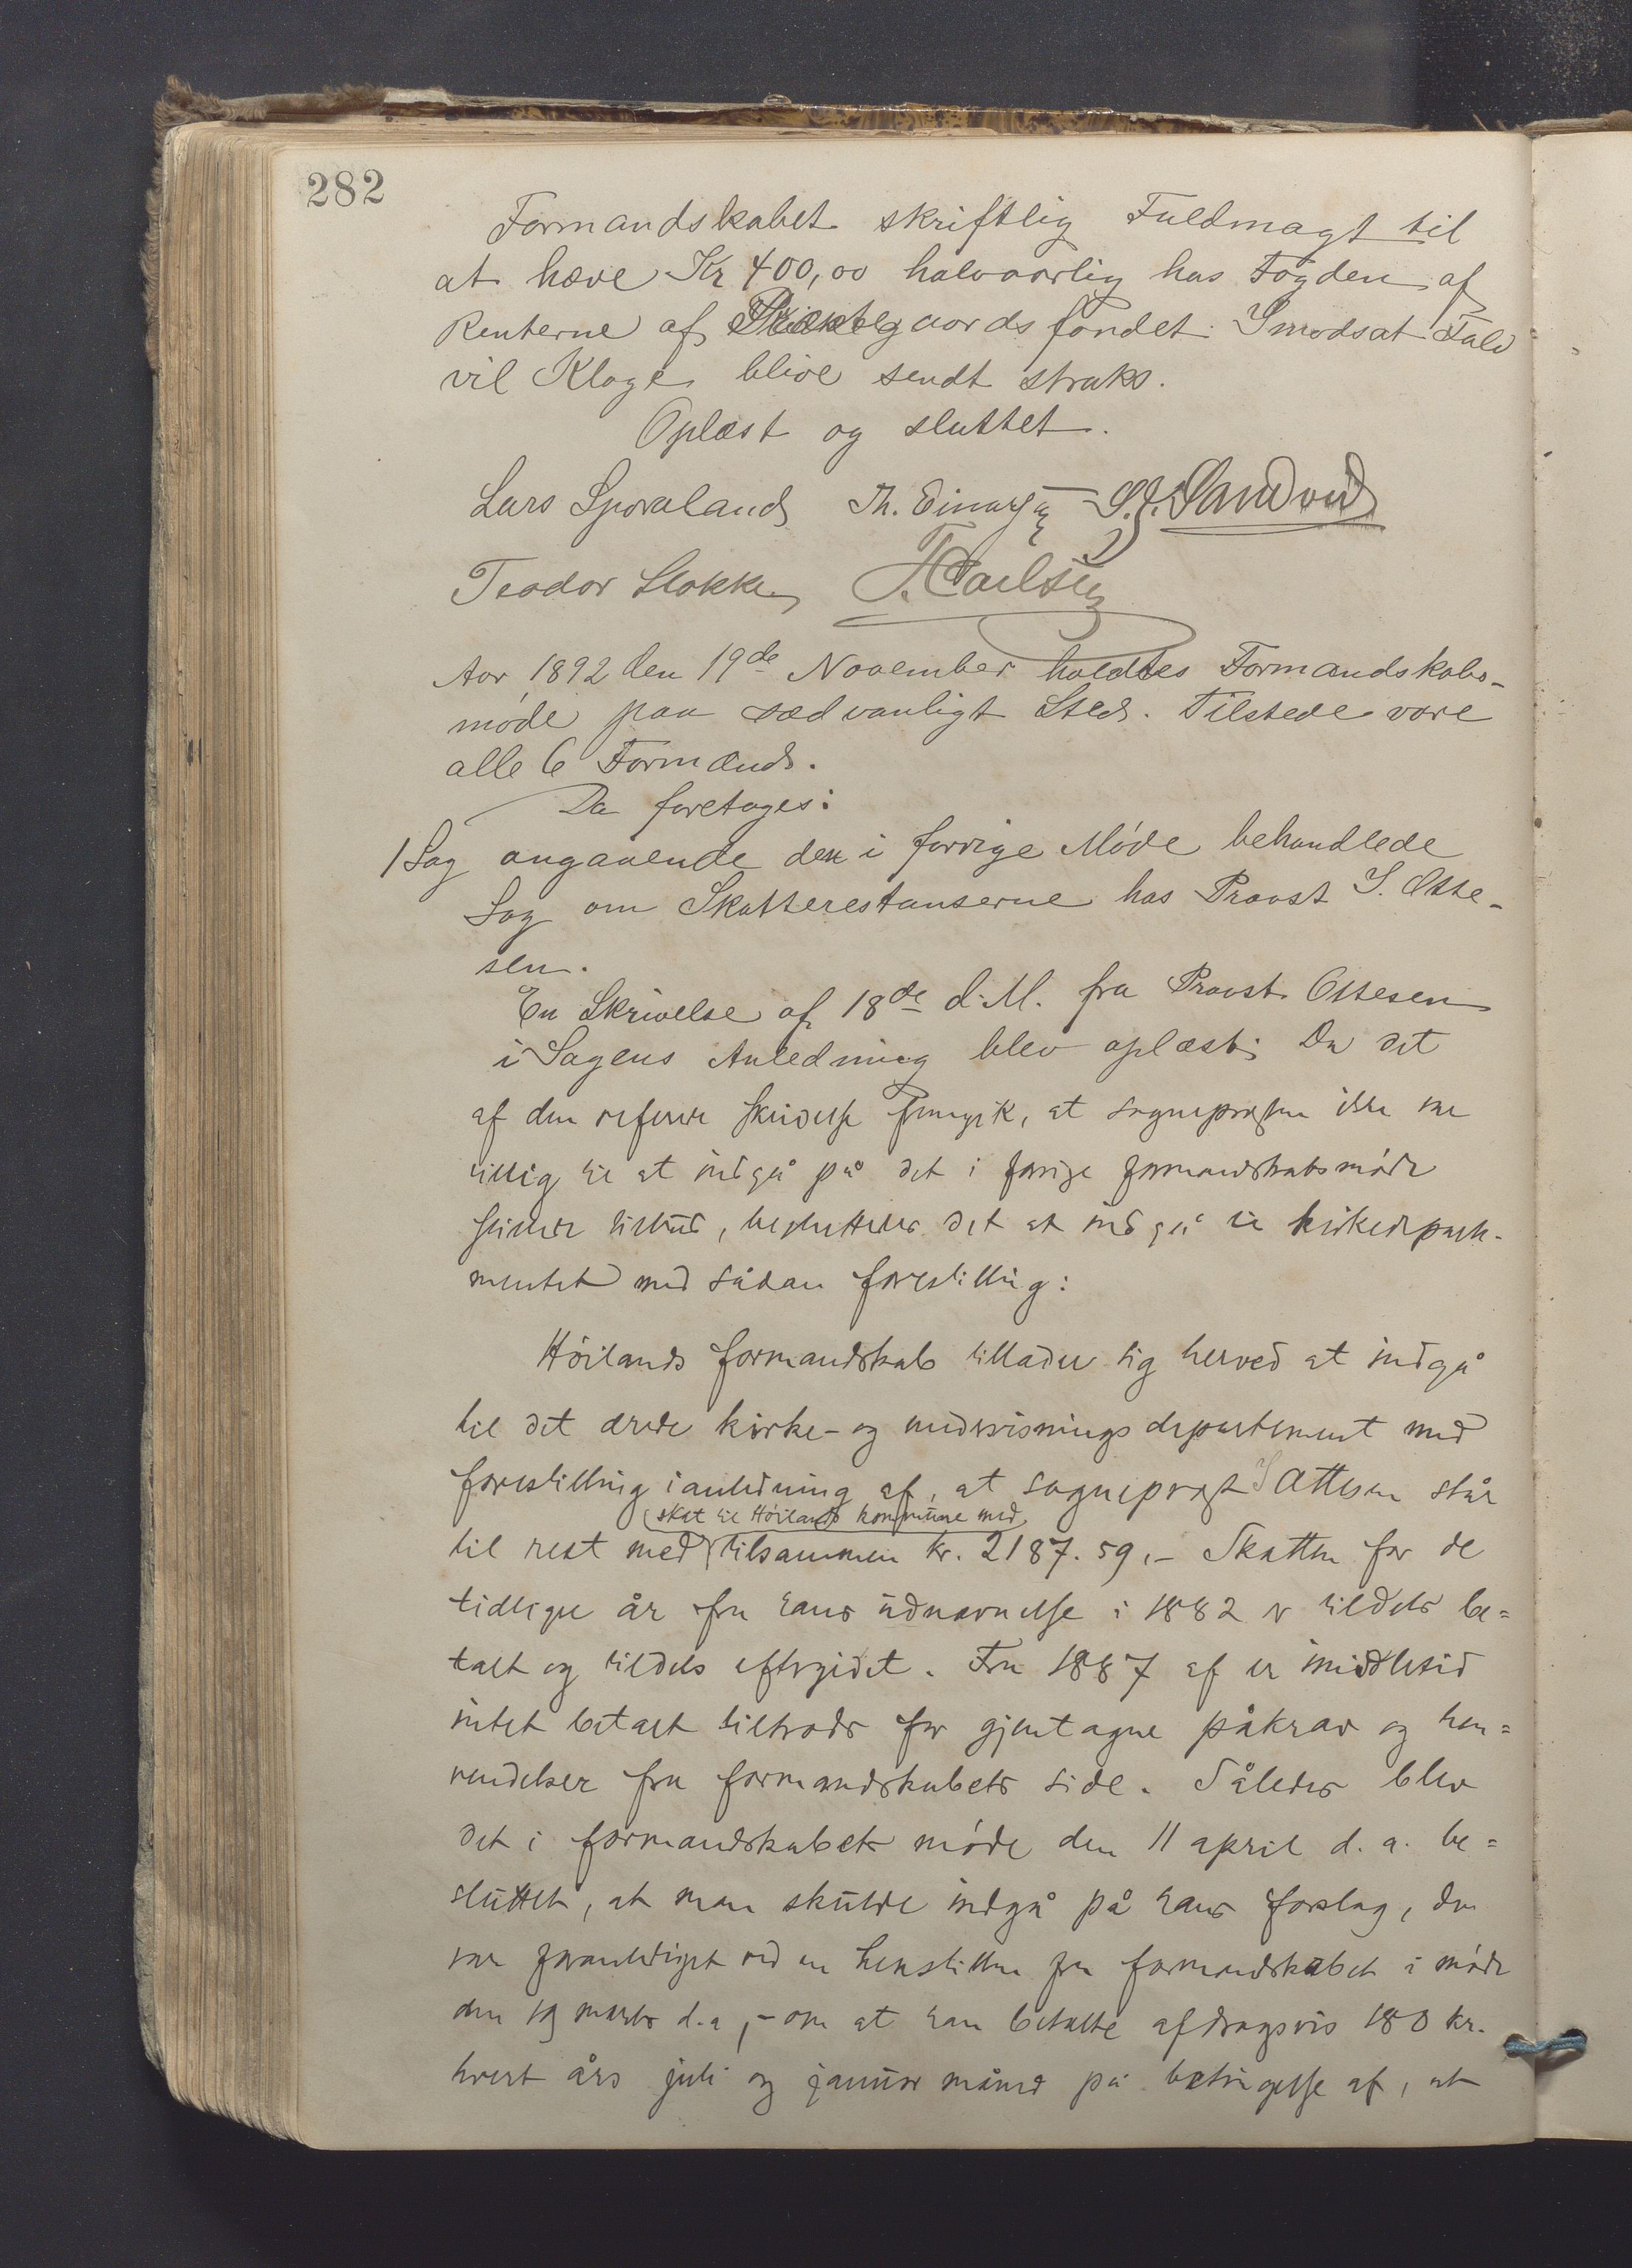 282
Formandskabet skriftlig Fuldmagt til
at hæve Kr 400,00 halvaarlig hos Fogden af
Renterne af Præstegaardsfondet. I modsat Fald
vil Klage blive sendt straks.
Oplæst og sluttet.
Lars Sporaland Th. Einarsen
Teodor Stokke
Aar 1892 den 19de November holdtes Formandskabs-
møde paa sædvanligt Sted. Tilstede vare
alle 6 Formænd.
Da foretoges:
1 Sag angaaende den i forrige Møde behandlede
Sag om Skatterestanserne hos Provst S. Otte-
sen.
En Skrivelse af 18de d.M. fra Provst Ottesen
i Sagens Anledning blev oplæst; Da det
af den refererte skrivelse fremgik, at sognepræsten ikke var
villig til at indgå på det i forrige formandskabsmøde
stillede tilbud, besluttedes det at indgå til kirkedeparte-
mentet med sådan forestilling:
Høilands formandskab tillader sig herved at indgå
til det ærede kirke- og undervisningsdepartement med
forestilling i anledning af, at sogneprest S Ottesen står
skat til Høilands kommune med
til rest med tilsammen kr. 2187.59,- Skatten for de
tidligere år fra hans udnævnelse i 1882 er tildels be=
talt og tildels eftergidet. Fra 1887 af er imidlertid
intet betalt tiltrods for gjentagne påkrav og hen=
vendelser fra formandskabets side. Således blev
det i formandskabets møde den 11 april d. a. be=
sluttet, at man skulde indgå på hans forslag, der
var foranlediget ved en henstillen fra formandskabet i møde
den 19 marts d.a, - om at han betalte afdragsvis 180 kr.
hvert års juli og januar måned på betingelse af, at